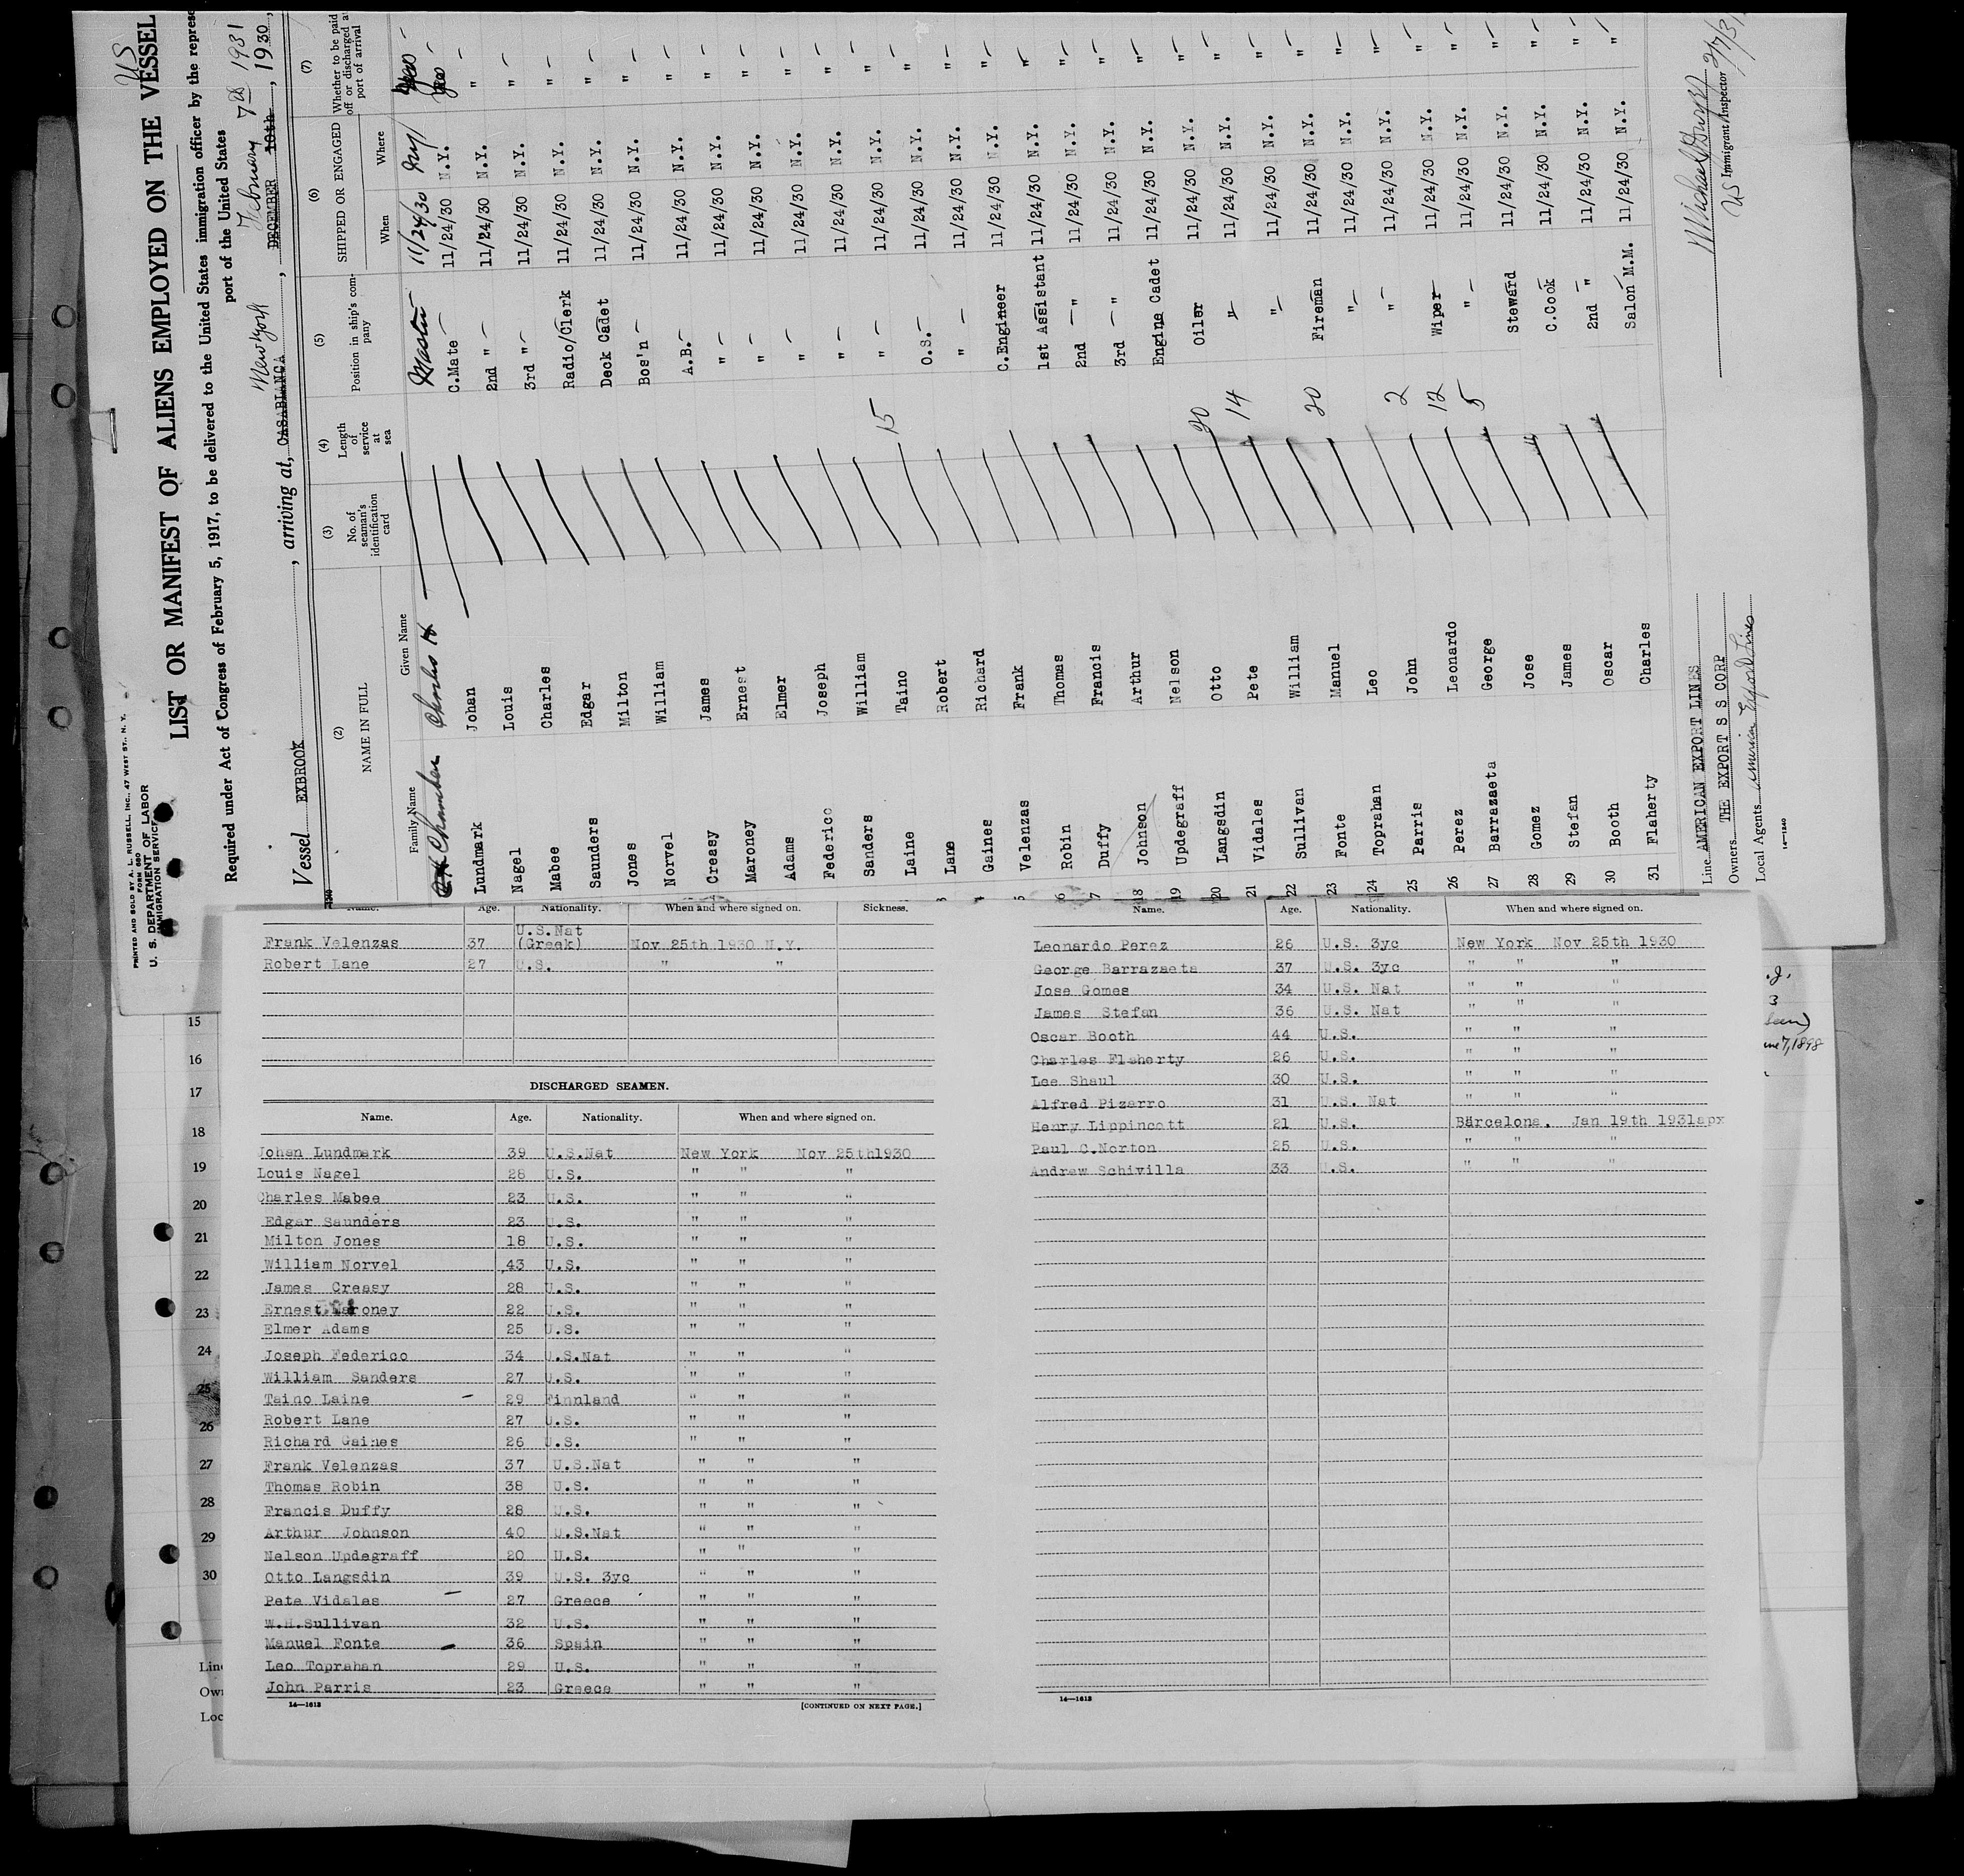 PRINTED AND SOLD BY A. L. RUSSELL, INC., 47 WEST ST., N. Y.
FORM 680
U. S. DEPARTMENT OF LABOR
IMMIGRATION SERVICE
US
LIST OR MANIFEST OF ALIENS EMPLOYED ON THE VESSEL
Required under Act of Congress of February 5, 1917, to be delivered to the United States immigration officer by the represe
port of the United States
New York February 7th 1931
Vessel EXBROOK, arriving at, CASABLANCA, DECEMBER 10th, 1930,
(2) (3) (4) (5) (6) (7)
NAME IN FULL No. of seaman's identification card Length of service at sea Position in ship's company SHIPPED OR ENGAGED Whether to be paid off or discharged at port of arrival
Family Name Given Name When Where
Chamber Charles H. Master 11/24/30 NY Yes
Lundmark Johan C.Mate 11/24/30 N.Y. Yes
Nagel Louis 2nd " 11/24/30 N.Y. "
Mabee Charles 3rd " 11/24/30 N.Y. "
Saunders Edgar Radio/Clerk 11/24/30 N.Y. "
Jones Milton Deck Cadet 11/24/30 N.Y. "
Norvel William Bos'n 11/24/30 N.Y. "
Creasy James A.B. 11/24/30 N.Y. "
Maroney Ernest " 11/24/30 N.Y. "
Adams Elmer " 11/24/30 N.Y. "
Federico Joseph " 11/24/30 N.Y. "
Sanders William " 11/24/30 N.Y. "
Laine Taino 15 " 11/24/30 N.Y. "
Lane Robert O.S. 11/24/30 N.Y. "
Gaines Richard " 11/24/30 N.Y. "
5 Velenzas Frank C.Engineer 11/24/30 N.Y. "
6 Robin Thomas 1st Assistant 11/24/30 N.Y. "
7 Duffy Francis 2nd " 11/24/30 N.Y. "
18 Johnson Arthur 3rd " 11/24/30 N.Y. "
19 Updegraff Nelson Engine Cadet 11/24/30 N.Y. "
20 Langsdin Otto 20 Oiler 11/24/30 N.Y. "
21 Vidales Pete 14 " 11/24/30 N.Y. "
22 Sullivan William " 11/24/30 N.Y. "
23 Fonte Manuel 20 Fireman 11/24/30 N.Y. "
24 Toprahan Leo " 11/24/30 N.Y. "
25 Parris John 2 " 11/24/30 N.Y. "
26 Perez Leonardo 12 Wiper 11/24/30 N.Y. "
27 Barrazaeta George 5 " 11/24/30 N.Y. "
28 Gomez Jose Steward 11/24/30 N.Y. "
29 Stefan James C.Cook 11/24/30 N.Y. "
30 Booth Oscar 2nd " 11/24/30 N.Y. "
31 Flaherty Charles Salon M.M. 11/24/30 N.Y. "
Line AMERICAN EXPORT LINES
Owners THE EXPORT S S CORP
Local Agents American Export Lines
US Immigrant Inspector 2/7/31
14—1240
Name. Age. Nationality. When and where signed on. Sickness.
Frank Velenzas 37 U.S.Nat (Greek) Nov 25th 1930 N.Y.
Robert Lane 27 U.S. " "
DISCHARGED SEAMEN.
Name. Age. Nationality. When and where signed on.
Johan Lundmark 39 U.S.Nat New York Nov 25th1930
Louis Nagel 28 U.S. " " "
Charles Mabee 23 U.S. " " "
Edgar Saunders 23 U.S. " " "
Milton Jones 18 U.S. " " "
William Norvel 43 U.S. " " "
James Creasy 28 U.S. " " "
Ernest Maroney 22 U.S. " " "
Elmer Adams 25 U.S. " " "
Joseph Federico 34 U.S.Nat " " "
William Sanders 27 U.S. " " "
Taino Laine 29 Finnland " " "
Robert Lane 27 U.S. " " "
Richard Gaines 26 U.S. " " "
Frank Velenzas 37 U.S.Nat " " "
Thomas Robin 38 U.S. " " "
Francis Duffy 28 U.S. " " "
Arthur Johnson 40 U.S.Nat " " "
Nelson Updegraff 20 U.S. " " "
Otto Langsdin 39 U.S. 3yc " " "
Pete Vidales 27 Greece " " "
W.H.Sullivan 32 U.S. " " "
Manuel Fonte 36 Spain " " "
Leo Toprahan 29 U.S. " " "
John Parris 23 Greece " " "
14—1613 [CONTINUED ON NEXT PAGE.]
Name. Age. Nationality. When and where signed on.
Leonardo Perez 26 U.S. 3yc New York Nov 25th 1930
George Barrazaeta 37 U.S. 3yc " " "
Jose Gomes 34 U.S. Nat " " "
James Stefan 36 U.S. Nat " " "
Oscar Booth 44 U.S. " " "
Charles Flaherty 26 U.S. " " "
Lee Shaul 30 U.S. " " "
Alfred Pizarro 31 U.S. Nat " " "
Henry Lippincott 21 U.S. Barcelona. Jan 19th 1931apx
Paul C.Norton 25 U.S. " " "
Andrew Schivilla 33 U.S. " " "
14—1613
15
16
17
18
19
20
21
22
23
24
25
26
27
28
29
30
Line
Own
Loc
3
7, 1898